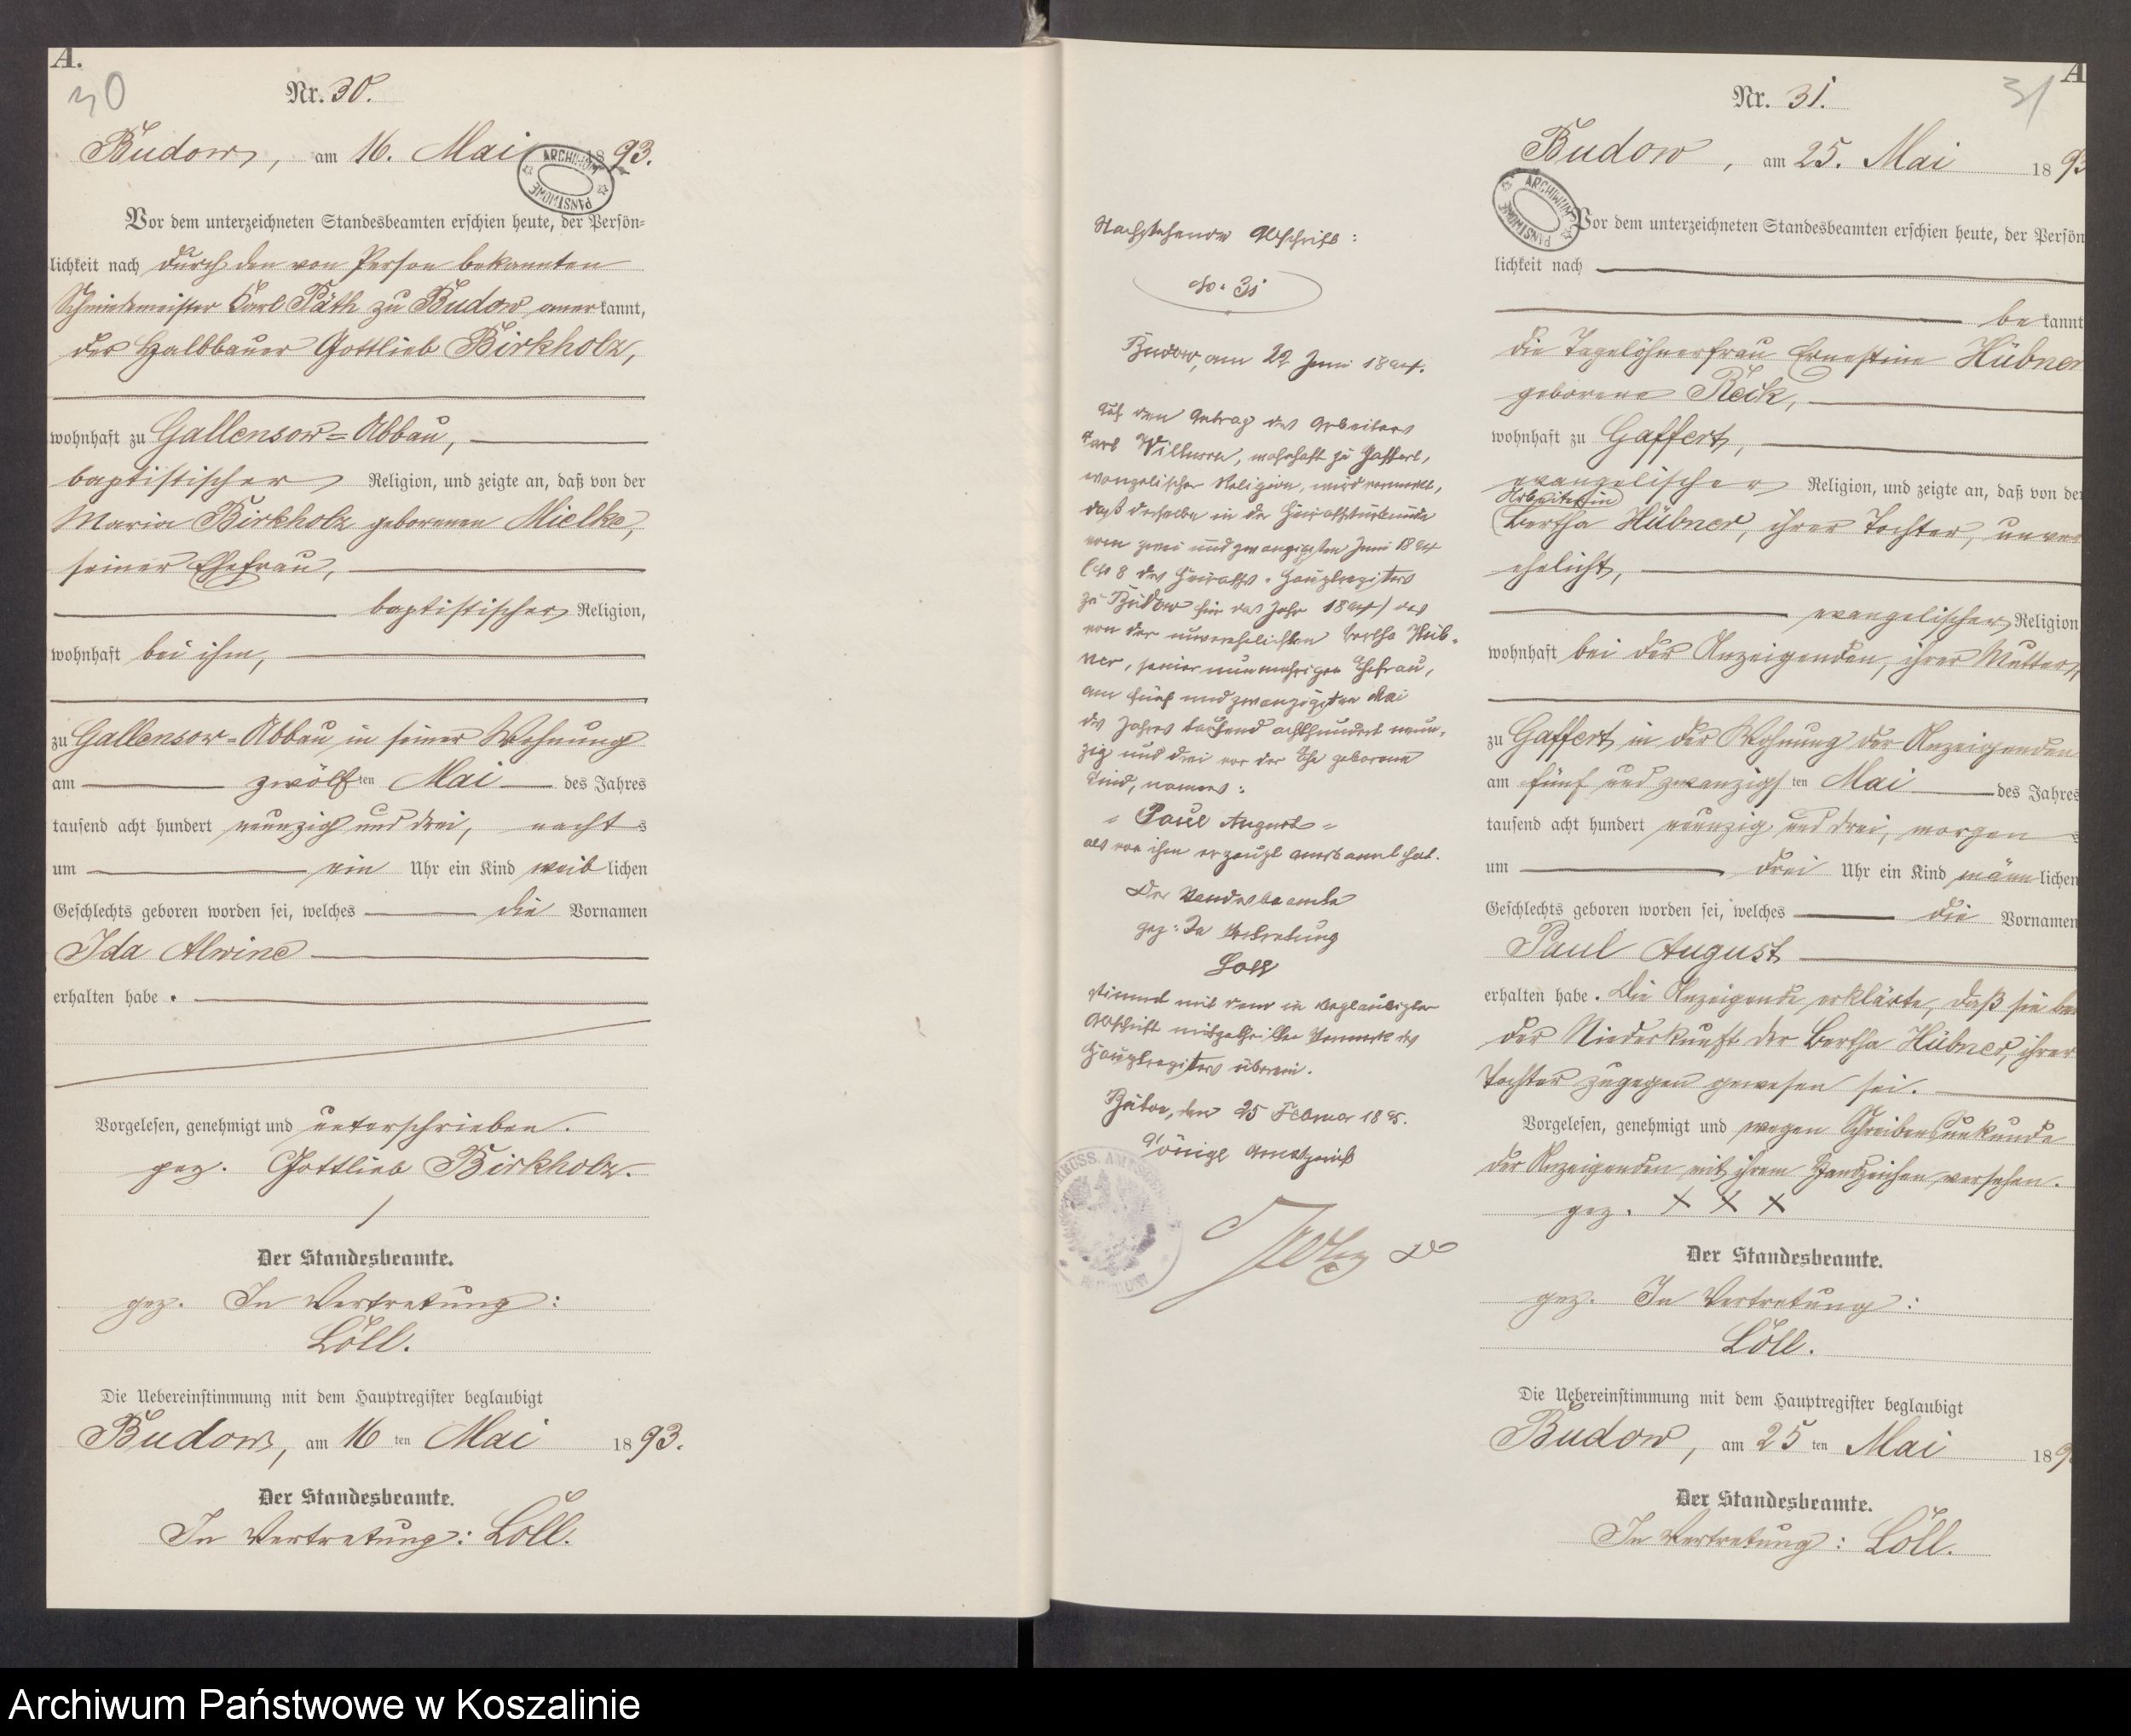 A.
30
Nr. 30.
Budow, am 16. Mai 1893.
ARCHIWUM PAŃSTWOWE
Vor dem unterzeichneten Standesbeamten erschien heute, der Persön=
lichkeit nach durch den von Person bekannten
Schmiedemeister Carl Päth zu Budow anerkannt,
der Halbbauer Gottlieb Birkholz,
wohnhaft zu Gallensow=Abbau,
baptistischer Religion, und zeigte an, daß von der
Maria Birkholz geborenen Mielke,
seiner Ehefrau,
baptistischer Religion,
wohnhaft bei ihm,
zu Gallensow=Abbau in seiner Wohnung
am zwölften Mai des Jahres
tausend acht hundert neunzig und drei, nachts
um ein Uhr ein Kind weiblichen
Geschlechts geboren worden sei, welches die Vornamen
Ida Alwine
erhalten habe.
Vorgelesen, genehmigt und unterschrieben.
gez. Gottlieb Birkholz.
Der Standesbeamte.
gez. In Vertretung:
Löll.
Die Uebereinstimmung mit dem Hauptregister beglaubigt
Budow, am 16ten Mai 1893.
Der Standesbeamte.
In Vertretung: Löll.
Nachstehende Abschrift:
No. 31
Budow, am 22 Juni 1894.
Auf den Antrag des Arbeiters
Carl, wohnhaft zu Gaffert,
evangelischer Religion, wird vermerkt,
daß derselbe in der Heirathsurkunde
vom zwei und zwanzigsten Juni 1894
(No 8 des Heiraths-Hauptregisters
zu Budow für das Jahr 1894) das
von der unverehelichten Bertha Hüb-
ner, seiner nunmehrigen Ehefrau,
am fünf und zwanzigsten Mai
des Jahres tausend achthundert neun-
zig und drei vor der Ehe geborene
Kind, namens:
"Paul August"
als von ihm erzeugt anerkannt hat.
Der Standesbeamte
gez: In Vertretung
Löll
Stimmt mit dem in beglaubigter
Abschrift mitgetheilten Vermerk des
Hauptregisters überein.
Bütow, den 25 Februar 1895.
Königl Amtsgericht
A
31
Nr. 31.
Budow, am 25. Mai 1893
ARCHIWUM PAŃSTWOWE
Vor dem unterzeichneten Standesbeamten erschien heute, der Persön
lichkeit nach
bekannt
die Tagelöhnerfrau Ernestine Hübner
geborene Reck,
wohnhaft zu Gaffert,
evangelischer Religion, und zeigte an, daß von der
Arbeiterin
Bertha Hübner, ihrer Tochter, unver
ehelicht,
evangelischer Religion
wohnhaft bei der Anzeigenden, ihrer Mutter,
zu Gaffert in der Wohnung der Anzeigenden
am fünf und zwanzigsten Mai des Jahres
tausend acht hundert neunzig und drei, morgens
um drei Uhr ein Kind männlichen
Geschlechts geboren worden sei, welches die Vornamen
Paul August
erhalten habe. Die Anzeigende erklärte, daß sie bei
der Niederkunft der Bertha Hübner, ihrer
Tochter zugegen gewesen sei.
Vorgelesen, genehmigt und wegen Schreibensunkunde
der Anzeigenden mit ihrem Handzeichen versehen.
gez. X X X
Der Standesbeamte.
gez. In Vertretung:
Löll.
Die Uebereinstimmung mit dem Hauptregister beglaubigt
Budow, am 25ten Mai 189
Der Standesbeamte.
In Vertretung: Löll.
Archiwum Państwowe w Koszalinie